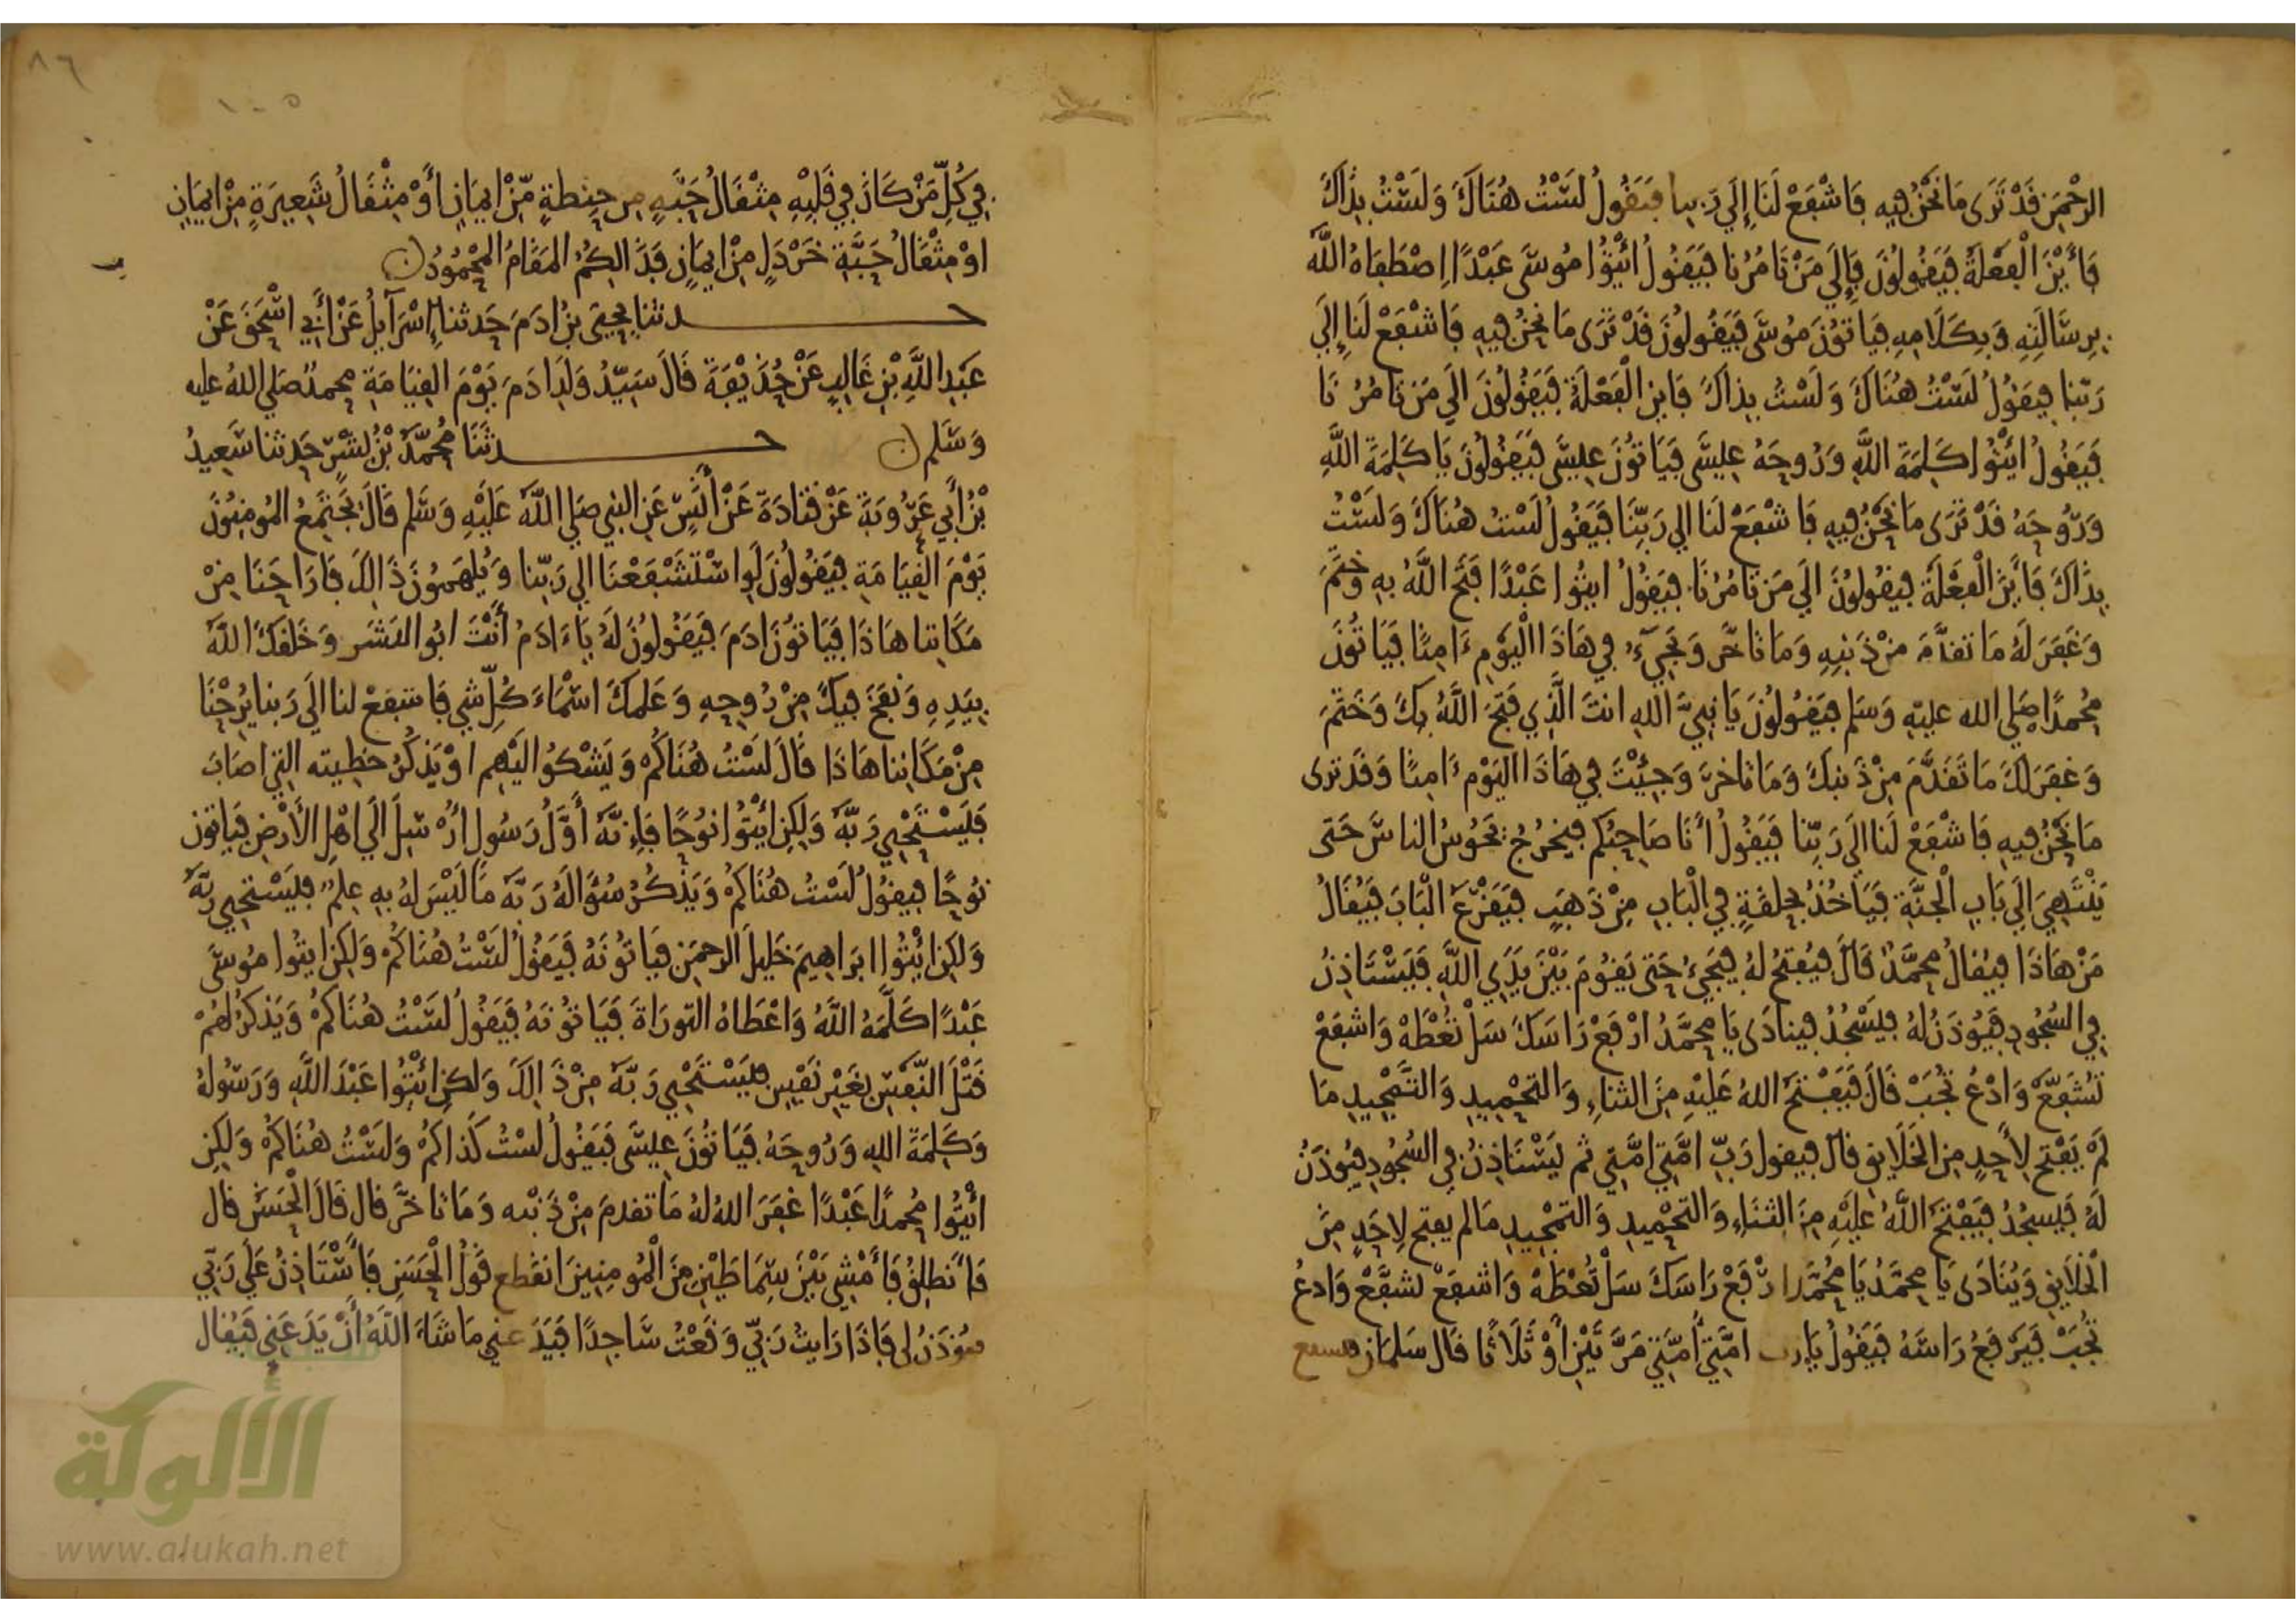 الرَّحْمَنِ قَدْ تَرَى مَا نَحْنُ فِيهِ فَاشْفَعْ لَنَا إِلَى رَبِّنا فَيَقُولُ لَسْتُ هُنَاكَ وَلَسْتُ بِذَاكَ
فَأَيْنَ الْفَعْلَةُ فَيَقُولُونَ فَإِلَى مَنْ تَامُرُنا فَيَقُولُ ائْتُوا مُوسَى عَبْدًا اِصْطَفَاهُ اللَّهُ
بِرِسَالَتِهِ وَبِكَلَامِهِ فَيَاتُونَ مُوسَى فَيَقُولُونَ قَدْ تَرَى مَا نَحْنُ فِيهِ فَاشْفَعْ لَنَا إِلَى
رَبِّنا فيَقُولُ لَسْتُ هُنَاكَ وَلَسْتُ بِذاكَ فَاين الْفَعْلَةُ فَيَقُولُونَ الَى مَن تَامُرُنَا
فَيَقُولُ ائتُوا كَلِمَةَ اللَّهِ وَرُوحَهُ عِيسَى فَيَاتُونَ عِيسَى فَيَقُولُونَ يَا كَلِمَةَ اللَّهِ
وَرُوحَهُ قَدْ تَرَى مَا نَحْنُ فِيهِ فَاشْفَعْ لَنَا الى رَبِّنَا فَيَقُولُ لَسْتُ هُنَاكَ وَلَسْتُ
بِذَاكَ فَأَيْنَ الْفَعْلَةُ فيَقُولُونَ الَى مَن تَامُرُنَا فيَقُولُ ايتُوا عَبْدًا فَتَحَ اللَّهُ بِهِ وَخَتَمَ
وَغَفَرَ لَهُ مَا تقدَّمَ مِنْ ذَنبِهِ وَمَا تاخَّر وَيَجِيءُ فِي هَاذَا الْيَوْمِ ءَامِنًا فَيَاتُونَ
مُحمدًا صَلى الله عليهِ وَسَلم فيَقُولُونَ يَا نبِيَّ الله انتَ الَّذِي فَتَحَ اللَّهُ بِكَ وَخَتَمَ
وَغفَرَ لَكَ مَا تَقَدَّمَ مِنْ ذَنبكَ وَمَا تاخرَ وَجِئْتَ فِي هَاذَا اليَوْم ءَامِنًا وَقَد ترى
مَا نَحْنُ فِيهِ فَاشْفَعْ لَنا الَى رَبِّنا فَيَقُولُ أَنَا صَاحِبُكم فيَخرُجُ يَحُوسُ الناسَ حَتى
يَنْتَهِيَ الَى بَابِ الْجَنَّةِ فَيَاخُذُ بحلقةٍ فِي الْبَابِ مِنْ ذَهَبٍ فَيَقْرَعُ الْبَابَ فَيُقَالُ
مَنْ هَاذَا فيُقالُ مُحمَّدٌ قَالَ فَيُفتحُ لَهُ فَيَجِيءُ حَتى يَقُومَ بَيْنَ يَدَيِ اللَّهِ فَيَسْتَاذِنُ
فِي السُّجُودِ فَيُوذَنُ لهُ فيَسْجُدُ فينادَى يَا محمَّدُ ارْفَعْ رَاسَكَ سَلْ تُعْطَهْ وَاشفَعْ
تُشَفَّعْ وَادْعُ تُجَبْ قَالَ فَيَفْتَحُ اللهُ عَلَيْهِ مِنَ الثناءِ وَالتحْمِيدِ وَالتَّمْجِيدِ مَا
لَمْ يَفْتَحْ لِأَحدٍ مِنَ الخَلَايقِ قالَ فيَقول رَبِّ امَّتِي امَّتِي ثم يَسْتَاذِنُ فِي السُّجُودِ فيُوذَنُ
لَهُ فَيَسجُدُ فَيَفْتَحُ اللَّهُ عَلَيْهِ مِنَ الثنَاءِ وَالتحْمِيدِ وَالتمْجِيدِ مَا لم يفتح لِاحَدٍ مِنَ
الْخَلَايقِ وَيُنَادَى يَا محمَّدُ يَا مُحَمَّدُ ارْفَعْ رَاسَكَ سَلْ تُعْطَهْ وَاشفَعْ تشَفَّعْ وَادعُ
تُجَبْ فَيَرفَعُ رَاسَهُ فَيَقُولُ يَا رب امَّتِي أُمَّتِي مَرَّتَيْنِ أَوْ ثَلَاثًا قَال سَلمَان فيشفع
٨٦
١٠٥
فِي كُلِّ مَنْ كَانَ فِي قَلْبِهِ مِثْقَالُ حَبَّةٍ مِن حِنطةٍ مِّنْ ايمَانٍ أَوْ مِثْقَالُ شَعِيرَةٍ مِنْ ايمَانٍ
اوْ مِثْقَالُ حَبَّةِ خَرْدَلٍ مِنْ ايمَانٍ فَذَالِكُمُ المَقَامُ المَحْمُودُ ن
حـــدثنا يحيَى بنُ ادَمَ حَدثنا إِسْرَآيلُ عَنْ أَبي اسْحَقَ عَنْ
عَبْدِ اللَّهِ بْنِ غَالِبٍ عَنْ حُذَيْفَةَ قَالَ سَيِّدُ وَلَدِ ادَمَ يَوْمَ القِيَامَةِ محمدٌ صَلى اللهُ عليه
وَسَلم ن حـــدثَنَا مُحَمَّدُ بْنُ بِشْرٍ حَدثنا سَعِيدُ
بْنُ أَبِي عَرُوبَةَ عَنْ قَتَادَةَ عَنْ أَنَسٍ عَنِ النبي صَلى اللَّهُ عَلَيْهِ وَسَلم قَالَ يَجْتَمِعُ المُومِنُونَ
يَوْمَ القِيَامَةِ فيَقُولُونَ لَوِ اسْتَشْفَعْنَا الى رَبِّنا وَيُلْهَمُونَ ذَالِكَ فَارَاحَنَا مِنْ
مَكَانِنا هَاذَا فَيَاتُونَ ادَمَ فَيَقُولُونَ لَهُ يَا ءَادَمُ أَنْتَ ابُو البَشَرِ وَخَلَقكَ اللَّهُ
بِيَدِهِ وَنفَخَ فِيكَ مِنْ رُوحِهِ وَعَلمكَ اسْمَاءَ كُلِّ شي فَاشفَعْ لنا الَى رَبنا يُرِحْنَا
مِنْ مَكَانِنا هَاذَا قَالَ لَسْتُ هُنَاكُمْ وَيَشْكُو الَيْهِم اوْ يَذكُرُ خطِيته التِي اصَابَ
فَيَسْتَحْيِي رَبَّهُ وَلَكِنِ ائْتُوا نُوحًا فَإِنَّهُ أَوَّلُ رَسُولٍ ارْسِلَ الَى اهْلِ الْأَرْضِ فيَاتون
نُوحًا فيقُولُ لَسْتُ هُنَاكُمْ وَيَذْكُرُ سُؤَالَهُ رَبَّهُ مَا لَيْسَ لهُ بِهِ عِلمٌ فيَسْتَحْيِي رَبَّهُ
وَلكِنِ ائْتُوا ابرَاهِيمَ خَلِيلَ الرحمَنِ فيَاتُونَهُ فَيَقُولُ لَسْتُ هُنَاكُمْ وَلكِنِ ايتُوا مُوسَى
عَبْدًا كَلَّمَهُ اللَّهُ وَاعْطَاهُ التوْرَاةَ فَيَاتُونَهُ فَيَقُولُ لَسْتُ هُنَاكُمْ وَيَذكُرُ لَهُمْ
قَتْلَ النَّفسِ بِغَيْرِ نَفْسٍ فيَسْتَحْيِي رَبَّهُ مِنْ ذَالِكَ وَلكِنِ ائتُوا عَبْدَ اللَّهِ وَرَسُولَهُ
وَكَلِمَةَ اللهِ وَرُوحَهُ فَيَاتُونَ عِيسَى فَيَقُولُ لَسْتُ كَذاكُمْ وَلَسْتُ هُنَاكُمْ وَلكِنِ
ائْتُوا مُحمدًا عَبْدًا غفَرَ اللهُ لهُ مَا تقدمَ مِنْ ذَنبه وَمَا تاخَّرَ قال قَالَ الْحَسَنُ قال
فَأَنطلِقُ فَأَمْشِي بَيْنَ سِمَاطَيْنِ مِنَ الْمُومِنِينَ انقطع قَوْلُ الْحَسَنِ فَأَسْتَاذِنُ عَلَى رَبِّي
فيُوذَنُ لى فَاذَا رَايتُ رَبِّي وَقَعْتُ سَاجِدًا فَيَدَعنِي مَا شَاءَ اللَّهُ أَنْ يَدَعَنِي فَيُقال
الألوكة
www.alukah.net